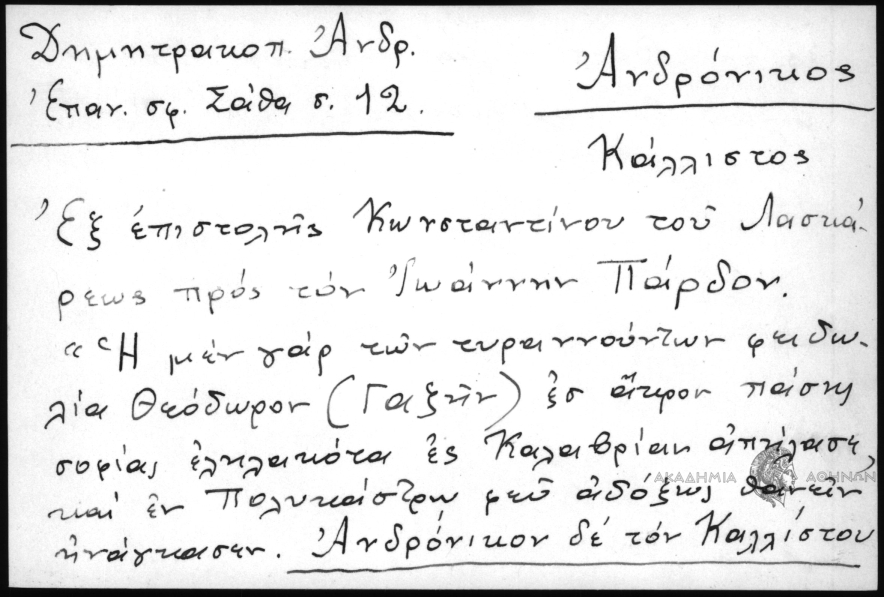 Δημητρακοπ. Ἀνδρ.
Ἐπαν. σφ. Σάθα σ. 12.
Ἀνδρόνικος
Κάλλιστος
Ἐξ ἐπιστολῆς Κωνσταντίνου τοῦ Λασκά-
ρεως πρός τόν Ἰωάννην Πάρδον.
"Ἡ μέν γάρ τῶν τυραννούντων φειδω-
λία Θεόδωρον (Γαζῆν) ἐς ἄκρον πάσης
σοφίας ἐληλακότα ἐς Καλαβρίαν ἀπήλασε,
καί ἐν Πολυκάστρῳ φεῦ ἀδόξως θανεῖν
ἠνάγκασεν. Ἀνδρόνικον δέ τόν Καλλίστου
ΑΚΑΔΗΜΙΑ ΑΘΗΝΩΝ